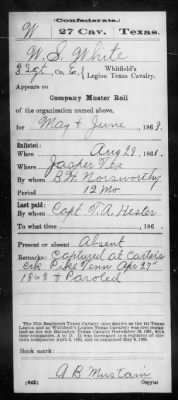 (Confederate.)
W 27 Cav. Texas.
W. S. White
Co. Whitfield's
Legion Texas Cavalry.
Appears on
Company Muster Roll
of the organization named above,
for May & June, 1863.
Enlisted:
When Aug 29, 1861.
Where Jasper Tex
By whom B. H. Norsworthy
Period 12 Mo
Last paid:
By whom Capt. T. A. Hester
To what time , 186
Present or absent Absent
Remarks: Captured at Carters
Crk Pike Tenn Apr 27th
1863 & Paroled
Book mark:
A B Mustain
(642) Copyist